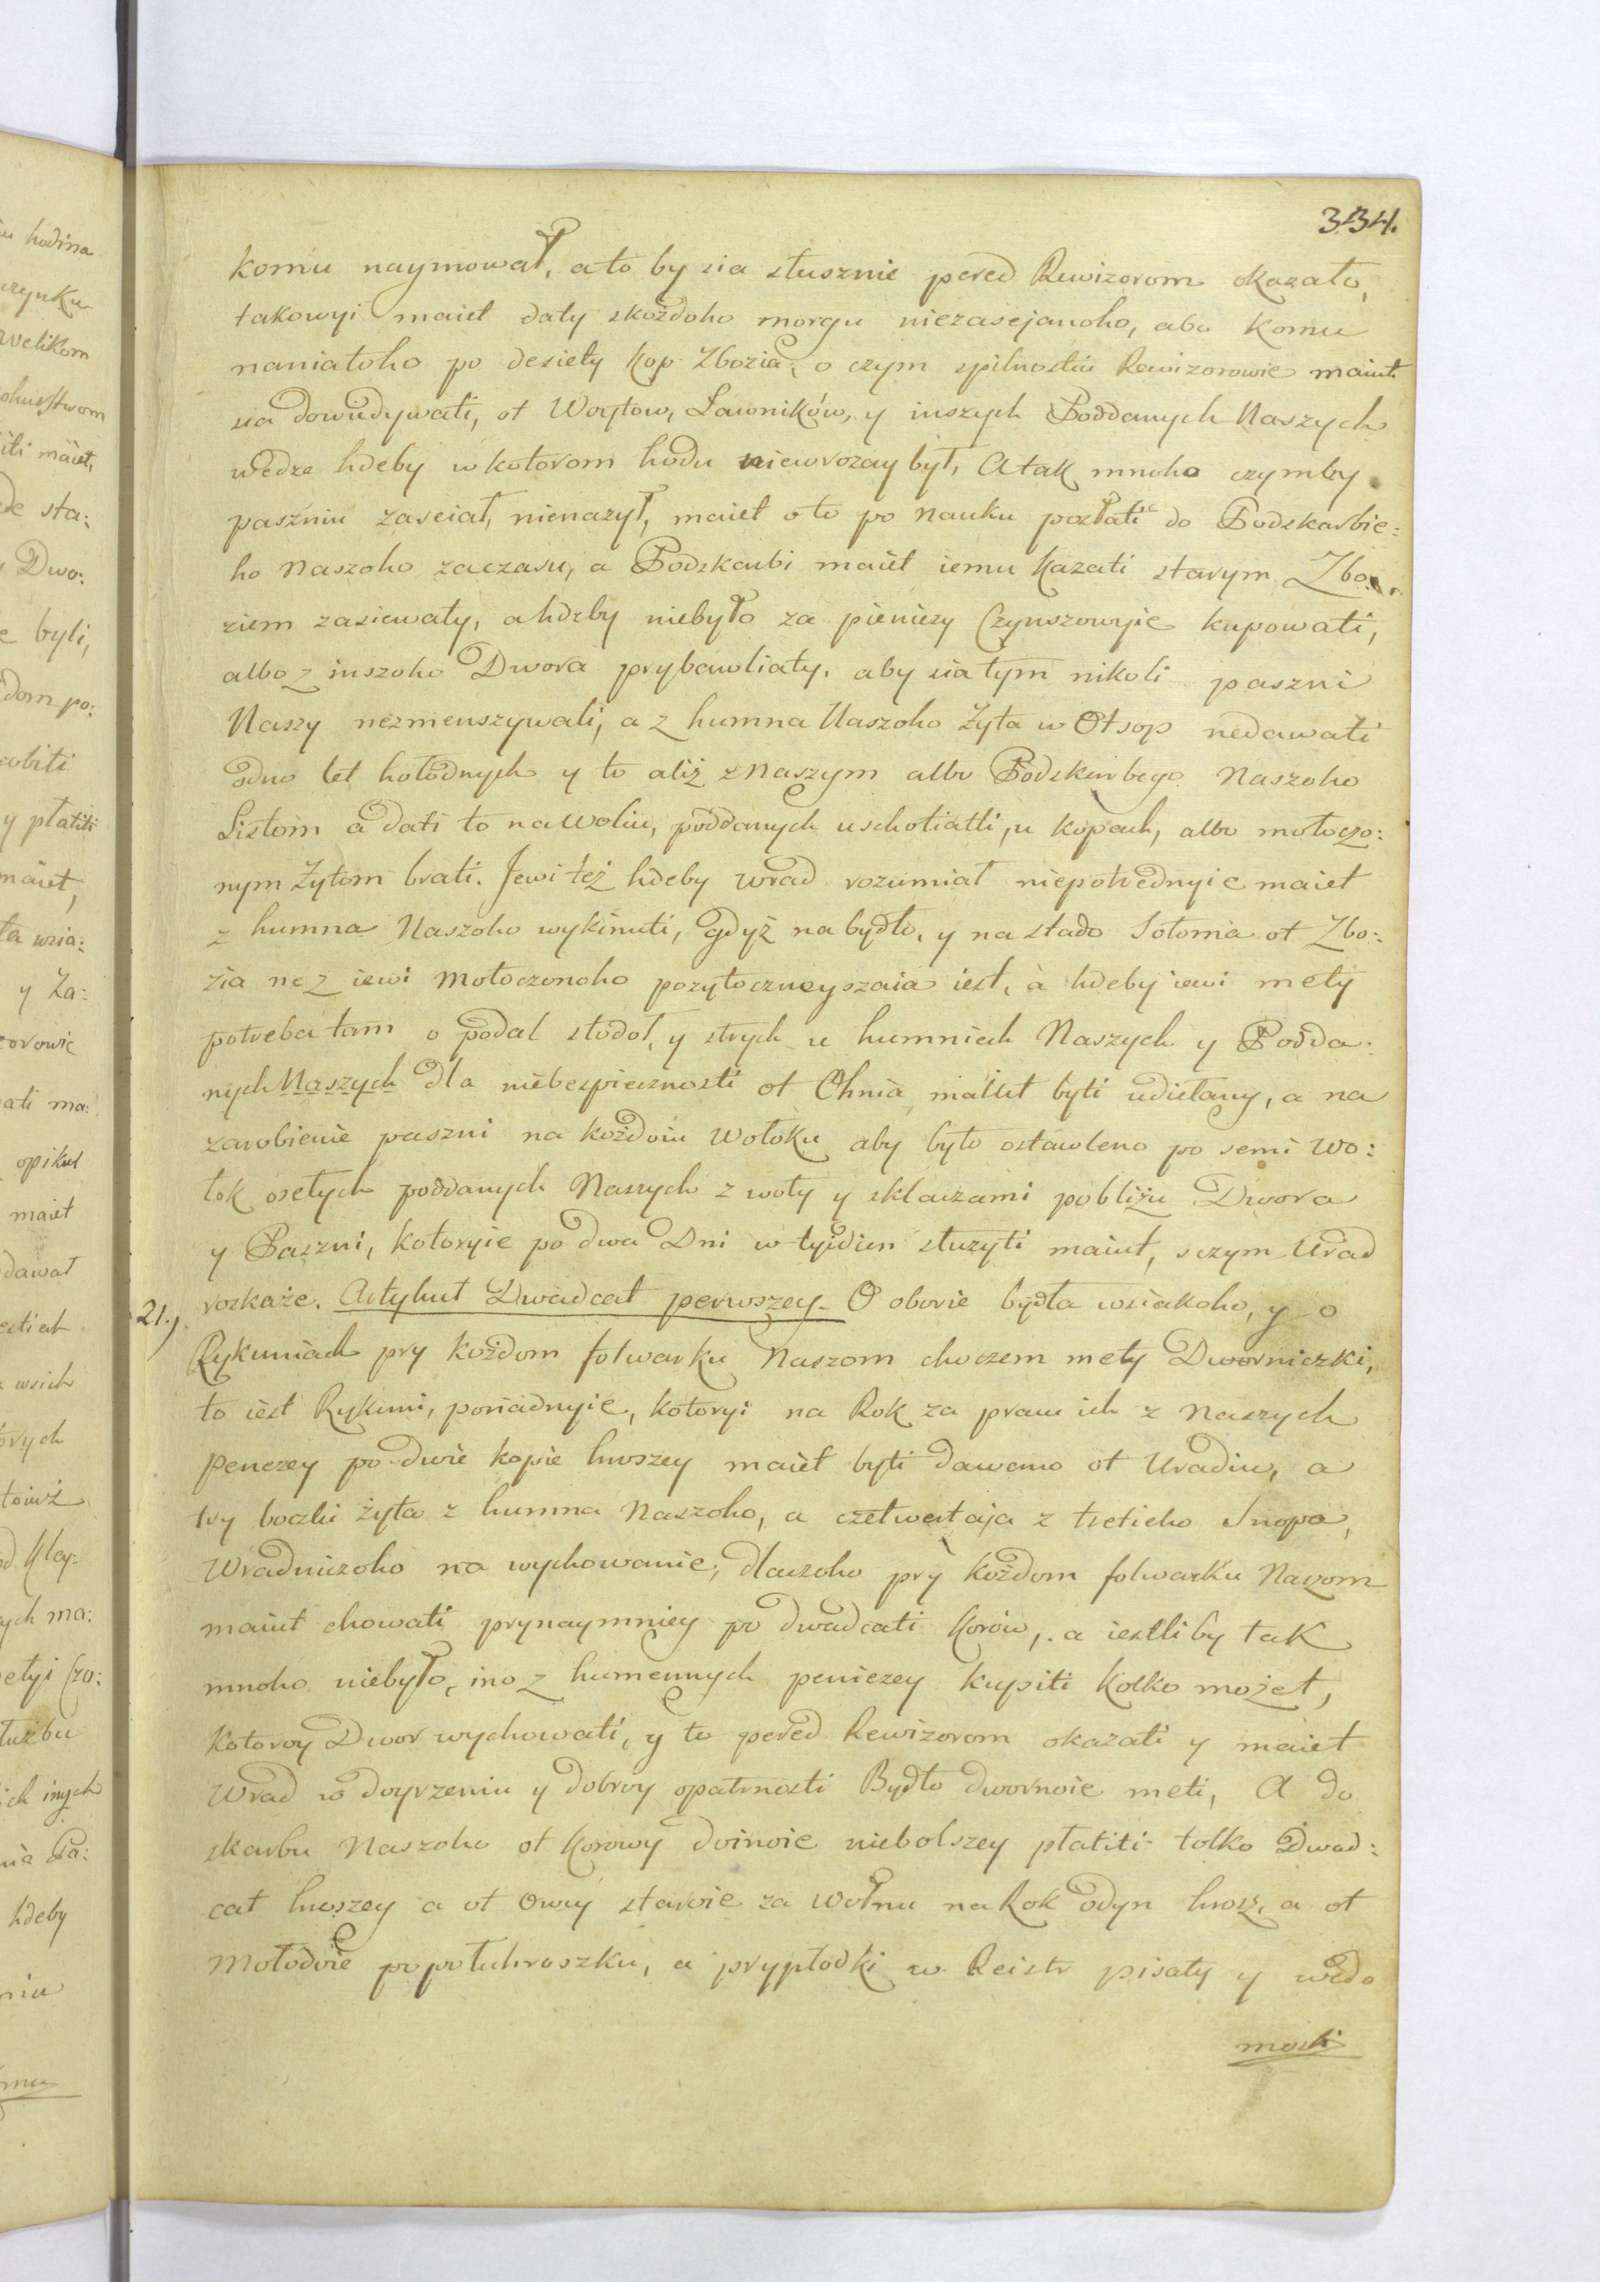 334.
komu naymował, a to by sia słusznie pered Rewizorom okazało,
takowyi maiet daty skożdoho morgu niezasejanoho, abo komu
naniatoho po desiety kop Zbozia, o czym zpilnostiu Rewizorowie maiut
sia dowudywati, ot Woytow, Ławników, y inszych Poddanych Naszych
wedze hdeby w kotorom hodu niewrozay był, A tak mnoho czymby
paszniu zaseiał, nienazył, maiet o to po nauku posłati do Podskarbie:
ho Naszoho zaczasu, a Podskarbi maiet iemu kazati starym Zbo:
ziem zasiewaty, a hdeby niebyło za pieniezy Czynszowyie kupowati,
albo z inszoho Dwora prybawliaty, aby sia tym nikoli paszni
Naszy nezmenszywali, a z humna Naszoho Zyta w Otsop nedawati
odno let hołodnych y to aliż z Naszym albo Podskarbego Naszoho
Listom a dati to na woliu, poddanych uschotiatli, u kopach, albo mołoczo:
nym Żytom brati. Jewi też hdeby Wrad rozumiał niepotrednyie maiet
z humna Naszoho wykinuti, gdyż na bydło, y na stado Sołoma ot Zbo:
zia nez iewi mołoczonoho pozytoczneyszaia iest, a hdeby iewi mety
potreba tam o podal stodoł, y strych u humniech Naszych y Podda:
nych Naszych dla niebezpiecznosti ot Ohnia maiut byti udiełany, a na
zarobienie paszni na kożdoiu Wołoku aby było ostawleno po semi Wo:
łok osełych poddanych Naszych z woły y sklaczami pobliżu Dwora
y Paszni, kotoryie po dwa Dni w tyidien służyti maiut, s czym Urad
21.) roskaże. Artykuł Dwadcat perwszey. O oborie bydła wsiakoho, y o
Rykuniach pry kożdom folwarku Naszom choczem mety Dworniczki,
to iest Rykuni, poriadnyie, kotoryi na Rok za pracu ich z Naszych
penezey po dwie kopie hroszey maiet byti dawano ot Uradiu, a
try boczki żyta z humna Naszoho, a czetwertaja z tretieho Snopa,
Wradniczoho na wychowanie, dlaczoho pry kożdom folwarku Naszom
maiut chowati prynaymniey po dwadcati korów, a iestliby tak
mnoho niebyło, ino z humennych peniezey kupiti kolko możet,
kotoroy Dwor wychowati, y to pered Rewizorom okazati y maiet
Wrad w doyrzeniu y dobroy opatrnosti Bydło dwornoie meti, A do
skarbu Naszoho ot korowy doinoie niebolszey płatiti tolko Dwad:
cat hroszey a ot owcy staroie za Wołnu na Rok odyn hrosz, a ot
Mołodoie po połuhroszku, a prypłodki w Reistr pisaty y wedo
mosti